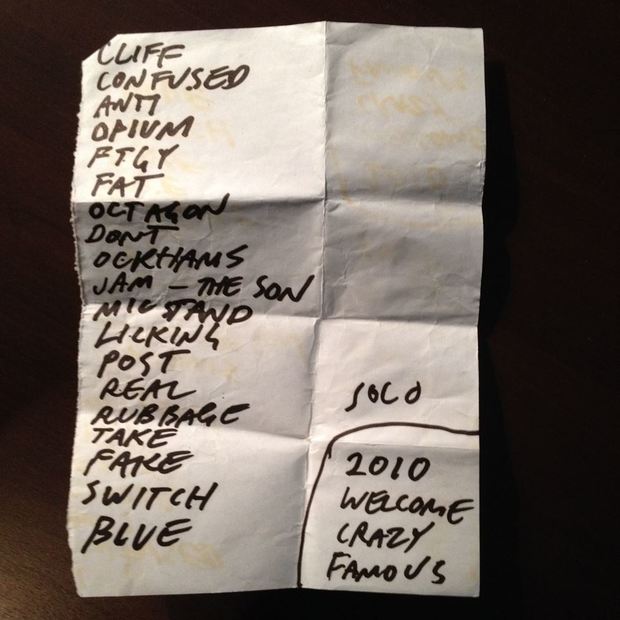 CLIFF
CONFUSED
ANTI
OPIUM
FTGY
FAT
OCTAGON
DONT
OCKHAMS
JAM – THE SON
MIC STAND
LICKING
POST
REAL
RUBBAGE
TAKE
FAKE
SWITCH
BLUE
SOLO
2010
WELCOME
CRAZY
FAMOUS